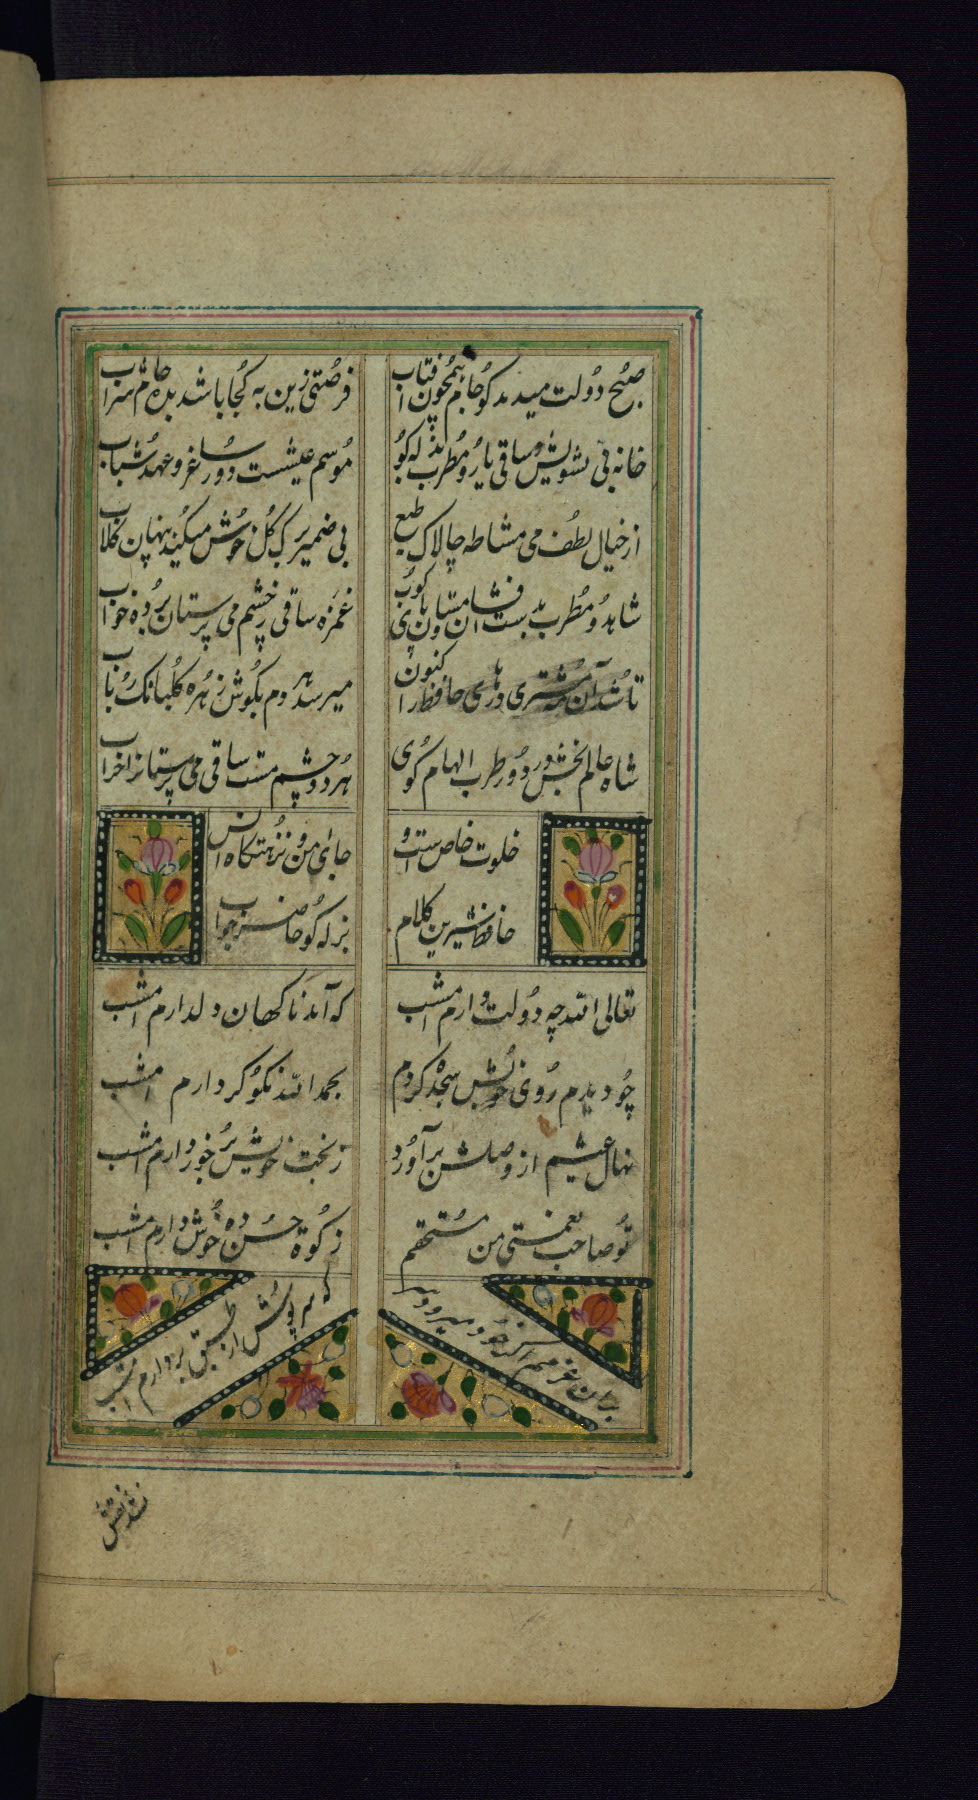 صبح دولت میدمد کو جام همچون آفتاب
فرصتی زین به کجا باشد بده جام شراب
خانه بی تشویش و ساقی یار و مطرب بذله کو
موسم عیشست و دور ساغر و عهد شباب
از خیال لطف می مشاطه چالاک طبع
بی ضمیر برک کل خوش میکند پنهان کلاب
شاهد و مطرب بدست افشان و مستان پای کوب
غمزه ساقی ز چشم می پرستان برده خواب
تا شد آن مشتری درهای حافظ را کنون
میرسد هر دم بکوش زهره کلبانک رباب
شاه عالم بخش در دور طرب الهام کوی
خلوت خاص است و
جای امن و نزهتکاه انس
حافظ شیرین کلام
بزله کو حاضر جواب
تعالی الله چه دولت دارم امشب
که آمد ناکهان دلدارم امشب
چو دیدم روی خوبش سجده کردم
بحمدالله نکو کردارم امشب
نهال عیشم از وصلش بر آورد
ز بخت خویش بر خوردارم امشب
تو صاحب نعمتی من مستحقم
زکوة حسن ده خوش دارم امشب
بران عزمم اکر خود میرود سر
که سر پوش از طبق بردارم امشب